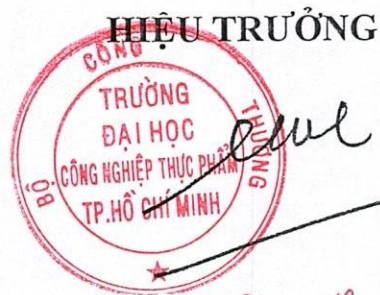 HIỆU TRƯỞNG
BỘ CÔNG THƯƠNG
TRƯỜNG
ĐẠI HỌC
CÔNG NGHIỆP THỰC PHẨM
TP.HỒ CHÍ MINH